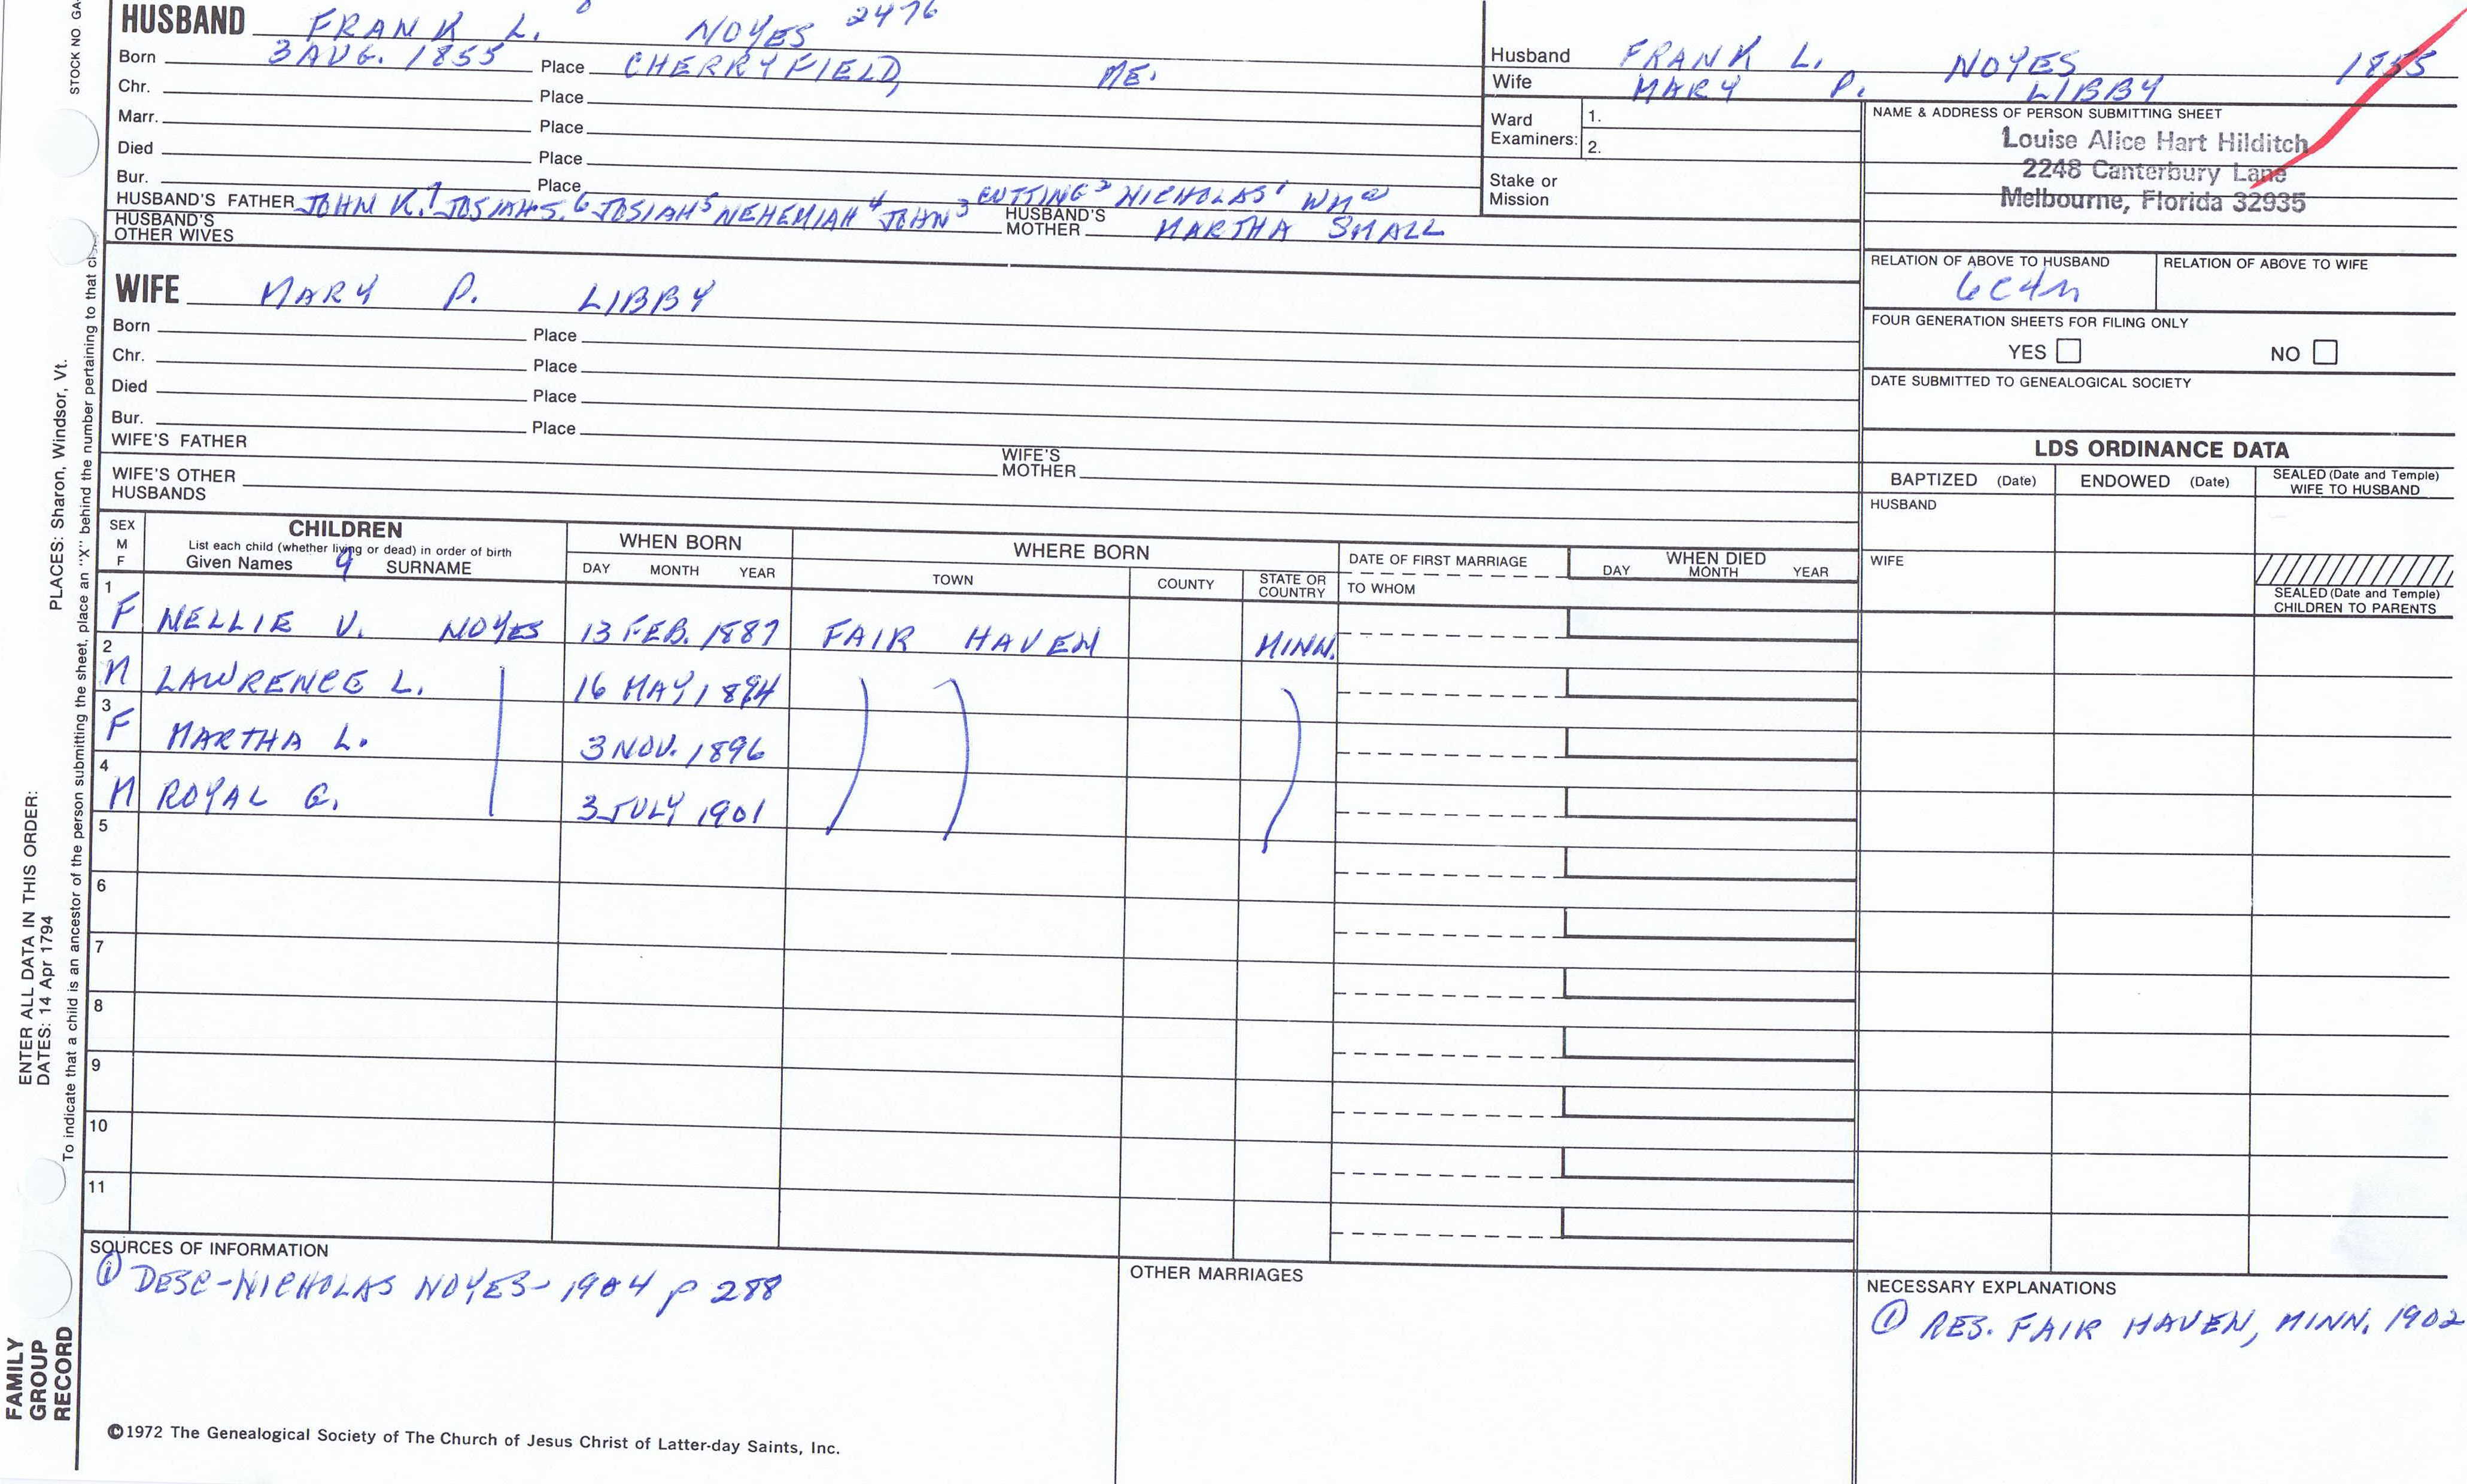 STOCK NO. GA-
PLACES: Sharon, Windsor, Vt.
ENTER ALL DATA IN THIS ORDER:
DATES: 14 Apr 1794
To indicate that a child is an ancestor of the person submitting the sheet, place an "X" behind the number pertaining to that
FAMILY
GROUP
RECORD
HUSBAND FRANK L. 8 NOYES 2476
Born 3 AUG. 1855 Place CHERRYFIELD, ME.
Chr. Place
Marr. Place
Died Place
Bur. Place
HUSBAND'S FATHER JOHN K.7 JOSIAH S.6 JOSIAH5 NEHEMIAH4 JOHN3 CUTTING2 NICHOLAS1 WM
HUSBAND'S MOTHER MARTHA SMALL
HUSBAND'S OTHER WIVES
Husband FRANK L. NOYES 1855
Wife MARY P. LIBBY
Ward Examiners: 1.
2.
Stake or Mission
NAME & ADDRESS OF PERSON SUBMITTING SHEET
Louise Alice Hart Hilditch
2248 Canterbury Lane
Melbourne, Florida 32935
RELATION OF ABOVE TO HUSBAND RELATION OF ABOVE TO WIFE
6C4R
FOUR GENERATION SHEETS FOR FILING ONLY
YES NO
DATE SUBMITTED TO GENEALOGICAL SOCIETY
WIFE MARY P. LIBBY
Born Place
Chr. Place
Died Place
Bur. Place
WIFE'S FATHER WIFE'S MOTHER
WIFE'S OTHER HUSBANDS
LDS ORDINANCE DATA
BAPTIZED (Date) ENDOWED (Date) SEALED (Date and Temple) WIFE TO HUSBAND
HUSBAND
WIFE
SEALED (Date and Temple) CHILDREN TO PARENTS
SEX M F
CHILDREN
List each child (whether living or dead) in order of birth
Given Names 9 SURNAME
WHEN BORN
DAY MONTH YEAR
WHERE BORN
TOWN COUNTY STATE OR COUNTRY
DATE OF FIRST MARRIAGE
TO WHOM
WHEN DIED
DAY MONTH YEAR
1 F NELLIE V. NOYES 13 FEB. 1887 FAIR HAVEN MINN.
2 M LAWRENCE L. 16 MAY 1894
3 F MARTHA L. 3 NOV. 1896
4 M ROYAL G. 3 JULY 1901
5
6
7
8
9
10
11
SOURCES OF INFORMATION
① DESC-NICHOLAS NOYES-1904 p 288
OTHER MARRIAGES
NECESSARY EXPLANATIONS
① RES. FAIR HAVEN, MINN. 1902
©1972 The Genealogical Society of The Church of Jesus Christ of Latter-day Saints, Inc.